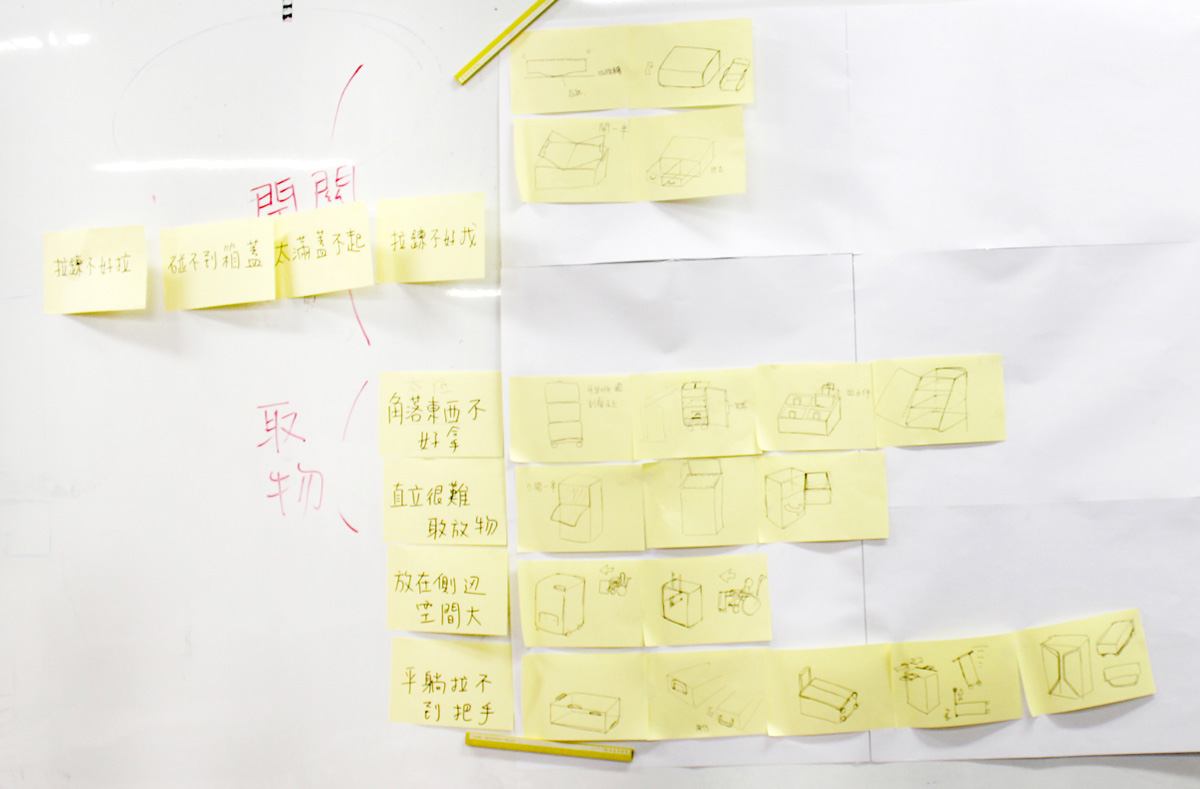 開一半
開關
拉鍊不好拉
碰不到箱蓋
太滿蓋不起
拉鍊不好找
取
物
角落東西不
好拿
直立很難
取放物
放在側边
空間大
平躺拉不
到把手